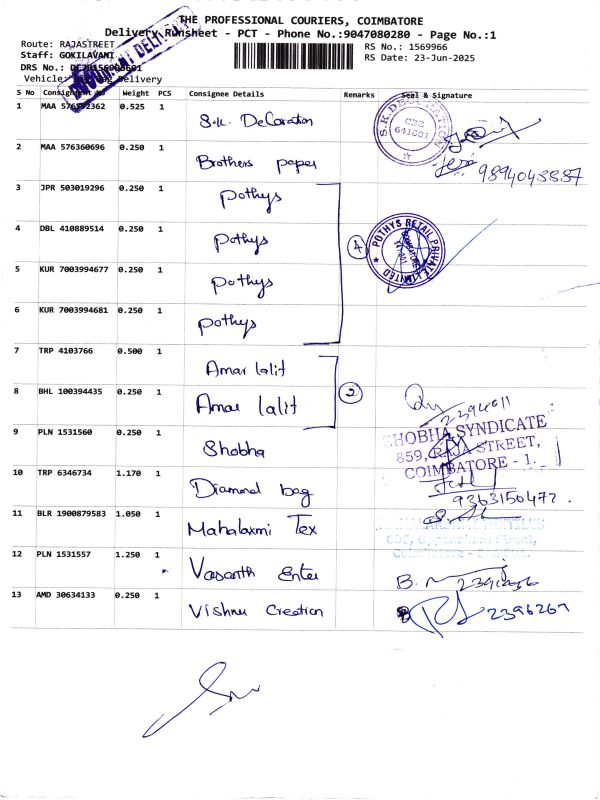 THE PROFESSIONAL COURIERS, COIMBATORE
Delivery Runsheet - PCT - Phone No.:9047080280 - Page No.:1
Route: RAJASTREET
RS No.: 1569966
Staff: GOKILAVANI
RS Date: 23-Jun-2025
DRS No.:
Vehicle: Delivery
S No Weight PCS Consignee Details Remarks Seal & Signature
1 MAA 0.525 1 S.K. Decoration
S.K.DECORATION
CBE
641001
2 MAA 576360696 0.250 1 Brothers paper
9894043887
3 JPR 503019296 0.250 1 Pothys
4 DBL 410889514 0.250 1 Pothys 4
POTHYS RETAIL PRIVATE LIMITED
COIMBATORE
5 KUR 7003994677 0.250 1 Pothys
6 KUR 7003994681 0.250 1 Pothys
7 TRP 4103766 0.500 1 Amar lalit
8 BHL 100394435 0.250 1 Amar lalit 2
2394011
9 PLN 1531560 0.250 1 Shobha
SHOBHA SYNDICATE
859, RAJA STREET,
COIMBATORE - 1.
10 TRP 6346734 1.170 1 Diamond bag
9363150472.
11 BLR 1900879583 1.050 1 Mahalaxmi Tex
Street,
12 PLN 1531557 1.250 1 Vasanth Enter
13 AMD 30634133 0.250 1 Vishnu Creation
2396267